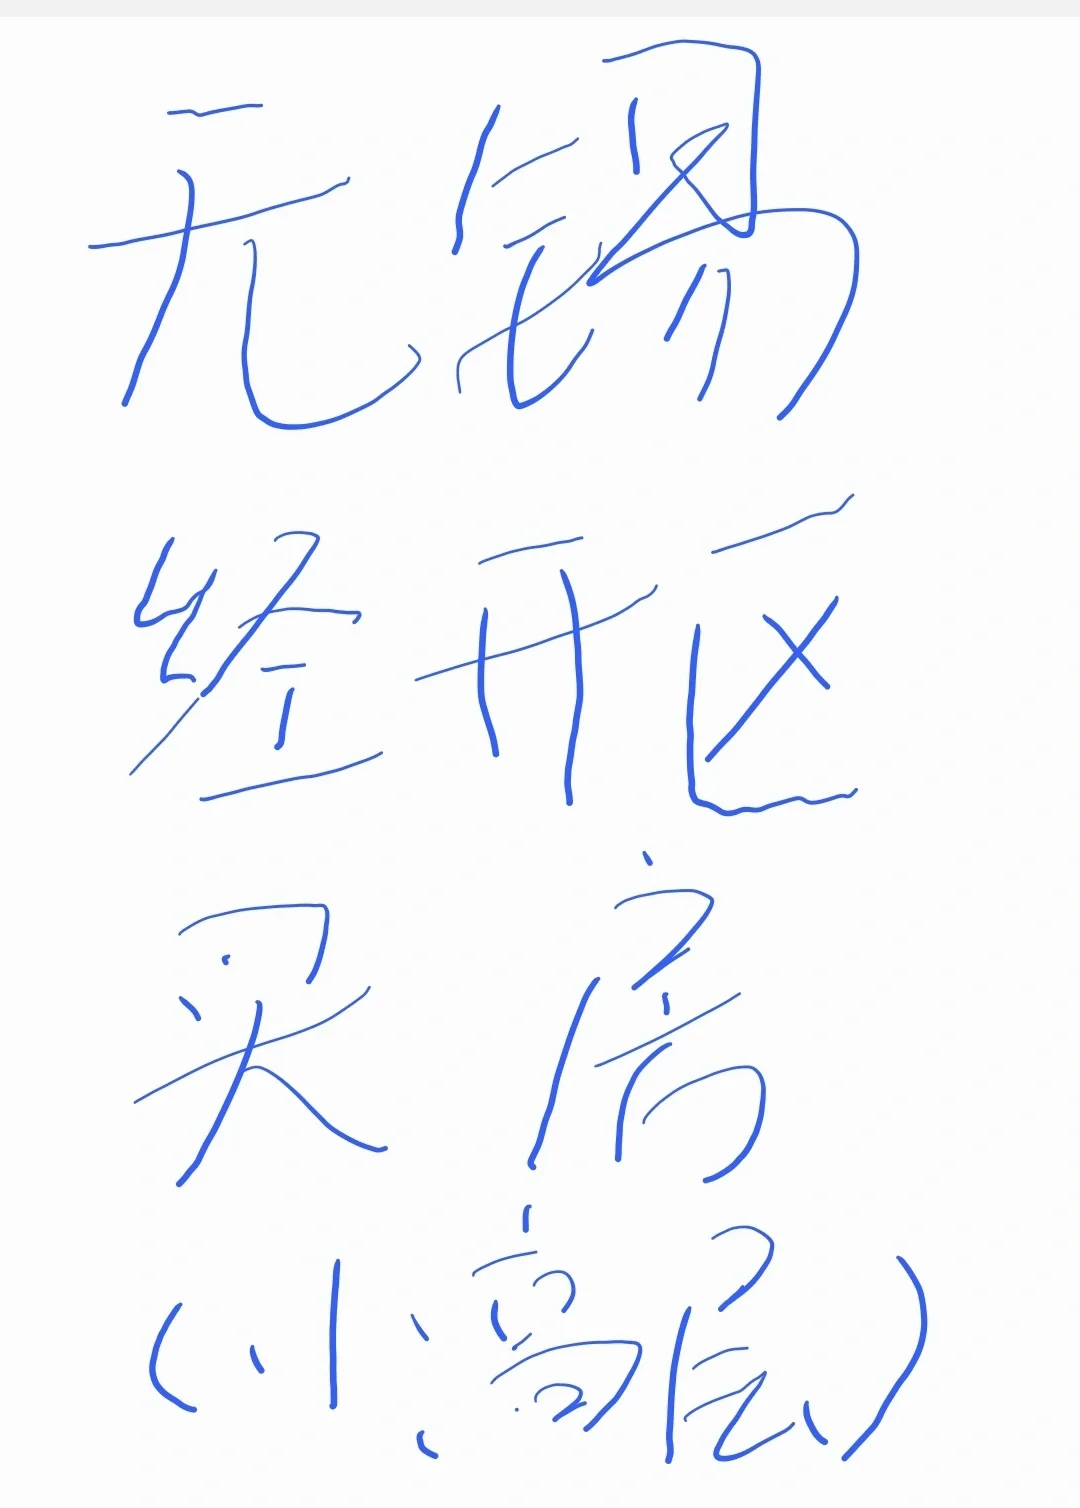 无锡
经开区
买房
(小高层)